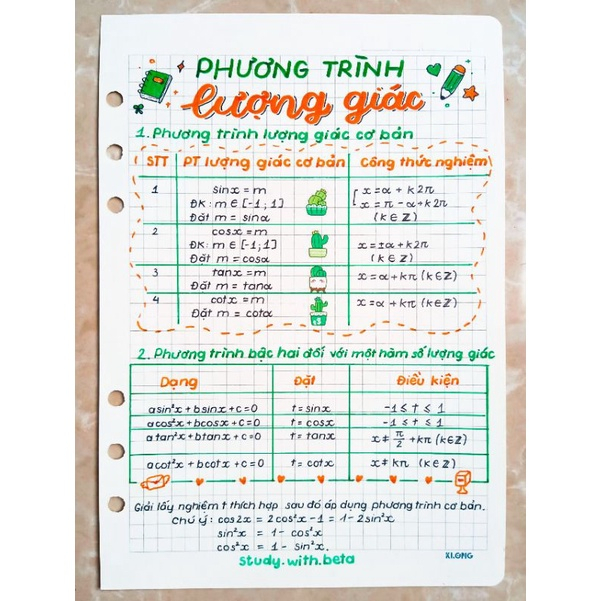 PHƯƠNG TRÌNH
lượng giác
1. Phương trình lượng giác cơ bản
STT PT lượng giác cơ bản Công thức nghiệm
1 sinx = m x = α + k2π
ĐK: m ∈ [-1; 1] x = π - α + k2π
Đặt m = sinα (k ∈ Z)
2 cosx = m
ĐK: m ∈ [-1; 1] x = ±α + k2π
Đặt m = cosα (k ∈ Z)
3 tanx = m x = α + kπ (k ∈ Z)
Đặt m = tanα
4 cotx = m x = α + kπ (k ∈ Z)
Đặt m = cotα
2. Phương trình bậc hai đối với một hàm số lượng giác
Dạng Đặt Điều kiện
asin²x + bsinx + c = 0 t = sinx -1 ≤ t ≤ 1
acos²x + bcosx + c = 0 t = cosx -1 ≤ t ≤ 1
atan²x + btanx + c = 0 t = tanx x ≠ π/2 + kπ (k ∈ Z)
acot²x + bcotx + c = 0 t = cotx x ≠ kπ (k ∈ Z)
Giải lấy nghiệm t thích hợp sau đó áp dụng phương trình cơ bản.
Chú ý: cos2x = 2cos²x - 1 = 1 - 2sin²x
sin²x = 1 - cos²x
cos²x = 1 - sin²x.
study.with.beta